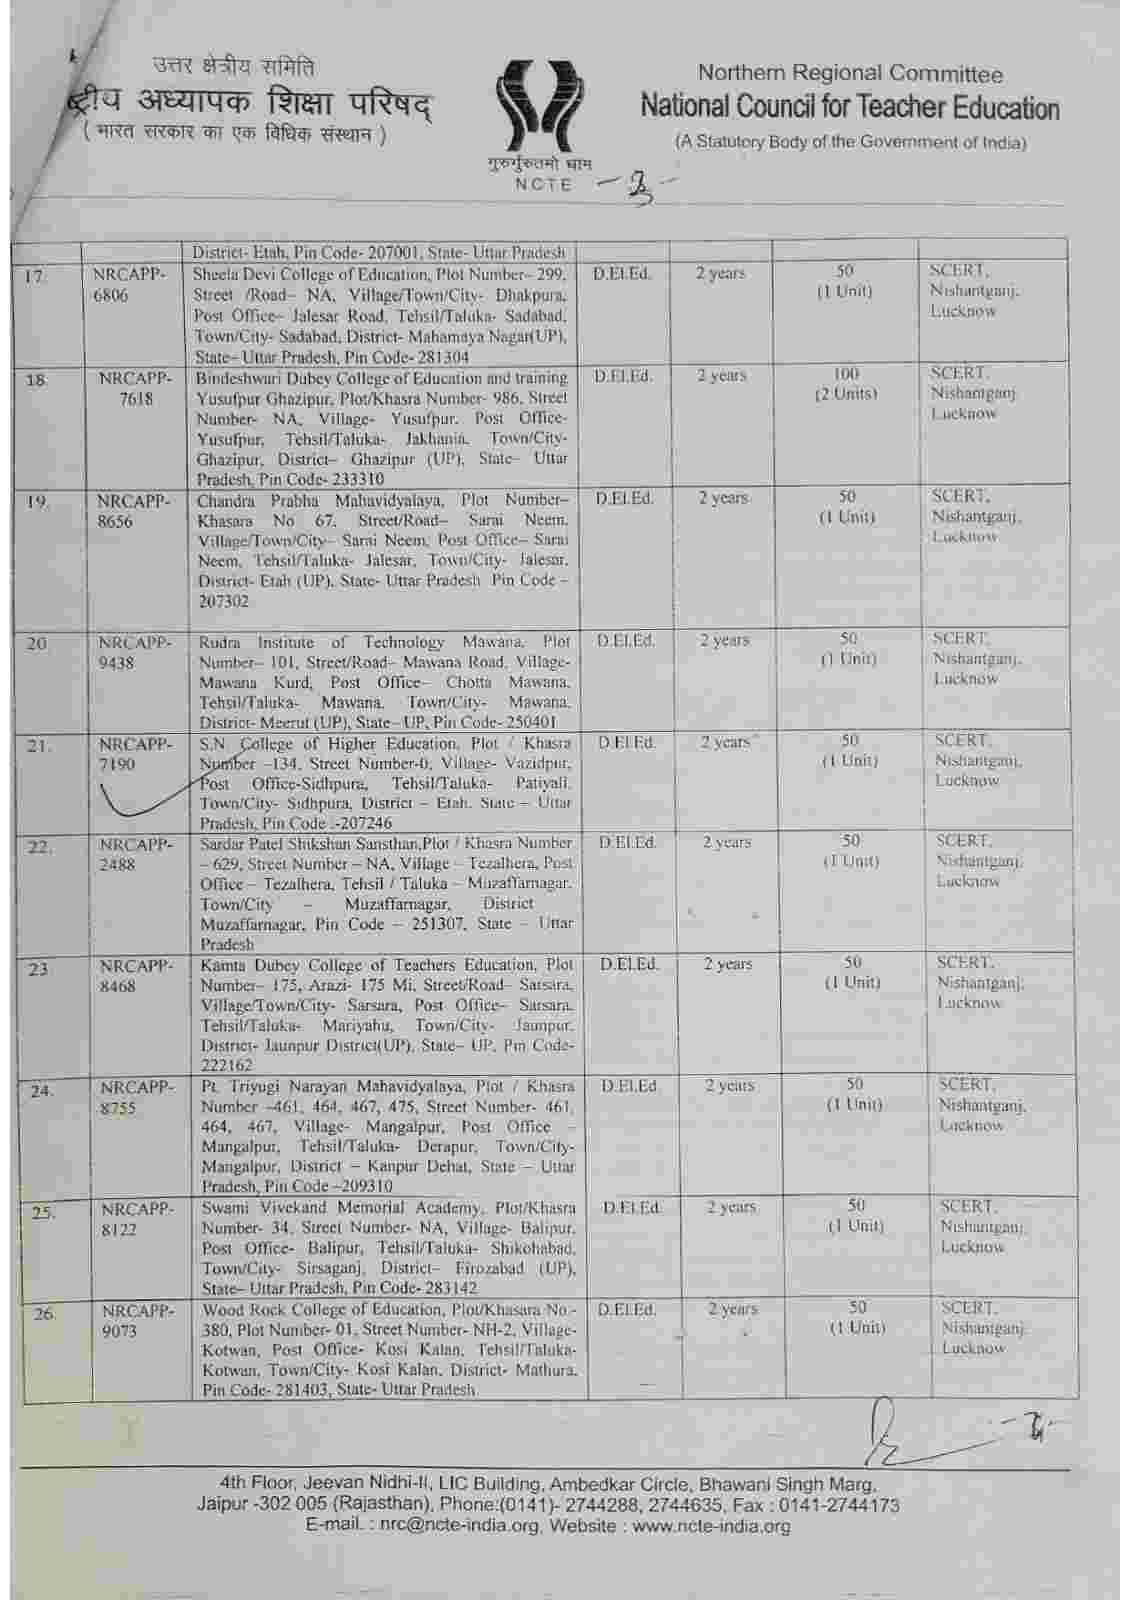 उत्तर क्षेत्रीय समिति
ष्ट्रीय अध्यापक शिक्षा परिषद्
( भारत सरकार का एक विधिक संस्थान )
गुरुर्गुरुतमो धाम
NCTE
Northern Regional Committee
National Council for Teacher Education
(A Statutory Body of the Government of India)
-3-
District- Etah, Pin Code- 207001, State- Uttar Pradesh
17. NRCAPP-6806 Sheela Devi College of Education, Plot Number– 299, D.El.Ed. 2 years 50 (1 Unit) SCERT, Nishantganj, Lucknow
Street /Road– NA, Village/Town/City- Dhakpura,
Post Office– Jalesar Road, Tehsil/Taluka- Sadabad,
Town/City- Sadabad, District- Mahamaya Nagar(UP),
State– Uttar Pradesh, Pin Code- 281304
18. NRCAPP-7618 Bindeshwari Dubey College of Education and training D.El.Ed. 2 years 100 (2 Units) SCERT, Nishantganj, Lucknow
Yusufpur Ghazipur, Plot/Khasra Number- 986, Street
Number- NA, Village- Yusufpur, Post Office-
Yusufpur, Tehsil/Taluka- Jakhania, Town/City-
Ghazipur, District– Ghazipur (UP), State– Uttar
Pradesh, Pin Code- 233310
19. NRCAPP-8656 Chandra Prabha Mahavidyalaya, Plot Number– D.El.Ed. 2 years 50 (1 Unit) SCERT, Nishantganj, Lucknow
Khasara No 67, Street/Road– Sarai Neem,
Village/Town/City– Sarai Neem, Post Office– Sarai
Neem, Tehsil/Taluka- Jalesar, Town/City- Jalesar,
District- Etah (UP), State- Uttar Pradesh Pin Code –
207302
20. NRCAPP-9438 Rudra Institute of Technology Mawana, Plot D.El.Ed. 2 years 50 (1 Unit) SCERT, Nishantganj, Lucknow
Number– 101, Street/Road– Mawana Road, Village-
Mawana Kurd, Post Office– Chotta Mawana,
Tehsil/Taluka- Mawana, Town/City- Mawana,
District- Meerut (UP), State– UP, Pin Code- 250401
21. NRCAPP-7190 S.N. College of Higher Education, Plot / Khasra D.El.Ed. 2 years 50 (1 Unit) SCERT, Nishantganj, Lucknow
Number –134, Street Number-0, Village- Vazidpur,
Post Office-Sidhpura, Tehsil/Taluka- Patiyali,
Town/City- Sidhpura, District – Etah, State – Uttar
Pradesh, Pin Code .-207246
22. NRCAPP-2488 Sardar Patel Shikshan Sansthan,Plot / Khasra Number D.El.Ed. 2 years 50 (1 Unit) SCERT, Nishantganj, Lucknow
– 629, Street Number – NA, Village – Tezalhera, Post
Office – Tezalhera, Tehsil / Taluka – Muzaffarnagar,
Town/City – Muzaffarnagar, District
Muzaffarnagar, Pin Code – 251307, State – Uttar
Pradesh
23 NRCAPP-8468 Kamta Dubey College of Teachers Education, Plot D.El.Ed. 2 years 50 (1 Unit) SCERT, Nishantganj, Lucknow
Number– 175, Arazi- 175 Mi, Street/Road– Sarsara,
Village/Town/City- Sarsara, Post Office– Sarsara,
Tehsil/Taluka- Mariyahu, Town/City- Jaunpur,
District- Jaunpur District(UP), State– UP, Pin Code-
222162
24. NRCAPP-8755 Pt. Triyugi Narayan Mahavidyalaya, Plot / Khasra D.El.Ed 2 years 50 (1 Unit) SCERT, Nishantganj, Lucknow
Number –461, 464, 467, 475, Street Number- 461,
464, 467, Village- Mangalpur, Post Office –
Mangalpur, Tehsil/Taluka- Derapur, Town/City-
Mangalpur, District – Kanpur Dehat, State – Uttar
Pradesh, Pin Code –209310
25. NRCAPP-8122 Swami Vivekand Memorial Academy, Plot/Khasra D.El.Ed. 2 years 50 (1 Unit) SCERT, Nishantganj, Lucknow
Number- 34, Street Number- NA, Village- Balipur,
Post Office- Balipur, Tehsil/Taluka- Shikohabad,
Town/City- Sirsaganj, District– Firozabad (UP),
State– Uttar Pradesh, Pin Code- 283142
26. NRCAPP-9073 Wood Rock College of Education, Plot/Khasara No.- D.El.Ed. 2 years 50 (1 Unit) SCERT, Nishantganj, Lucknow
380, Plot Number- 01, Street Number- NH-2, Village-
Kotwan, Post Office- Kosi Kalan, Tehsil/Taluka-
Kotwan, Town/City- Kosi Kalan, District- Mathura,
Pin Code- 281403, State- Uttar Pradesh
4th Floor, Jeevan Nidhi-II, LIC Building, Ambedkar Circle, Bhawani Singh Marg,
Jaipur -302 005 (Rajasthan), Phone:(0141)- 2744288, 2744635, Fax : 0141-2744173
E-mail. : nrc@ncte-india.org, Website : www.ncte-india.org